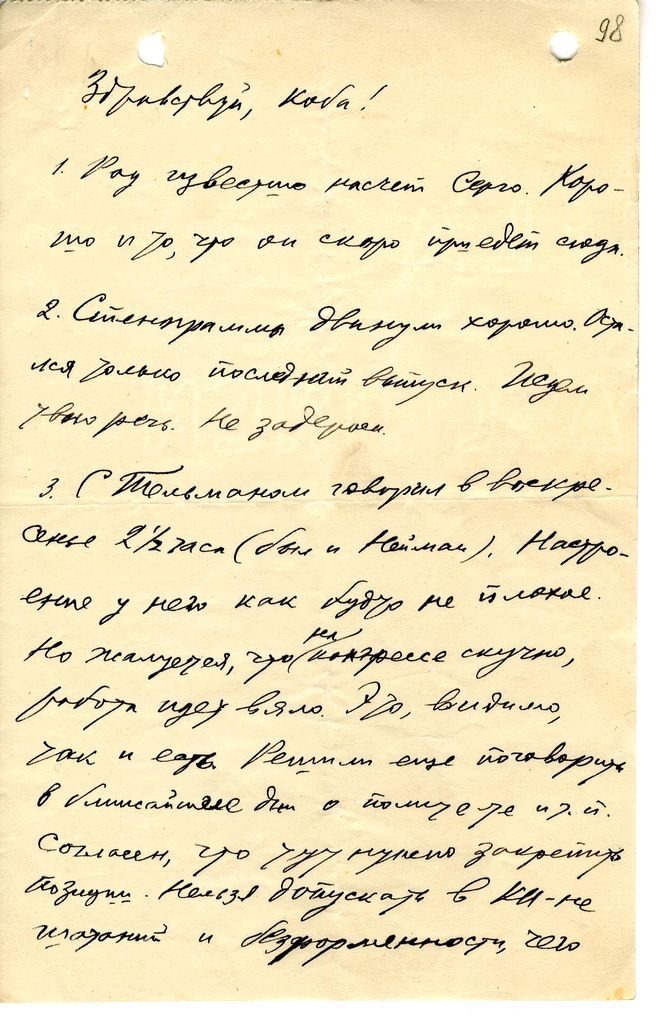 98
Здравствуй, Коба!
1. Рад известию насчет Серго. Хоро-
шо и то, что он скоро приедет сюда.
2. Стенограммы двинули хорошо. Оста-
лся только последний выпуск. Ждем
твою речь. Не задержи.
3. С Тельманом говорил в воскре-
сенье 2 1/2 часа (был и Нейман). Настро-
ение у него как будто не плохое.
Но жалуется, что на конгрессе скучно,
работа идет вяло. Это, видимо,
так и есть. Решили еще поговорить
в ближайшие дни о политсе и т.п.
Согласен, что тут нужно закрепить
позиции. Нельзя допускать в КИ-не
шатаний и бесформенности, чего